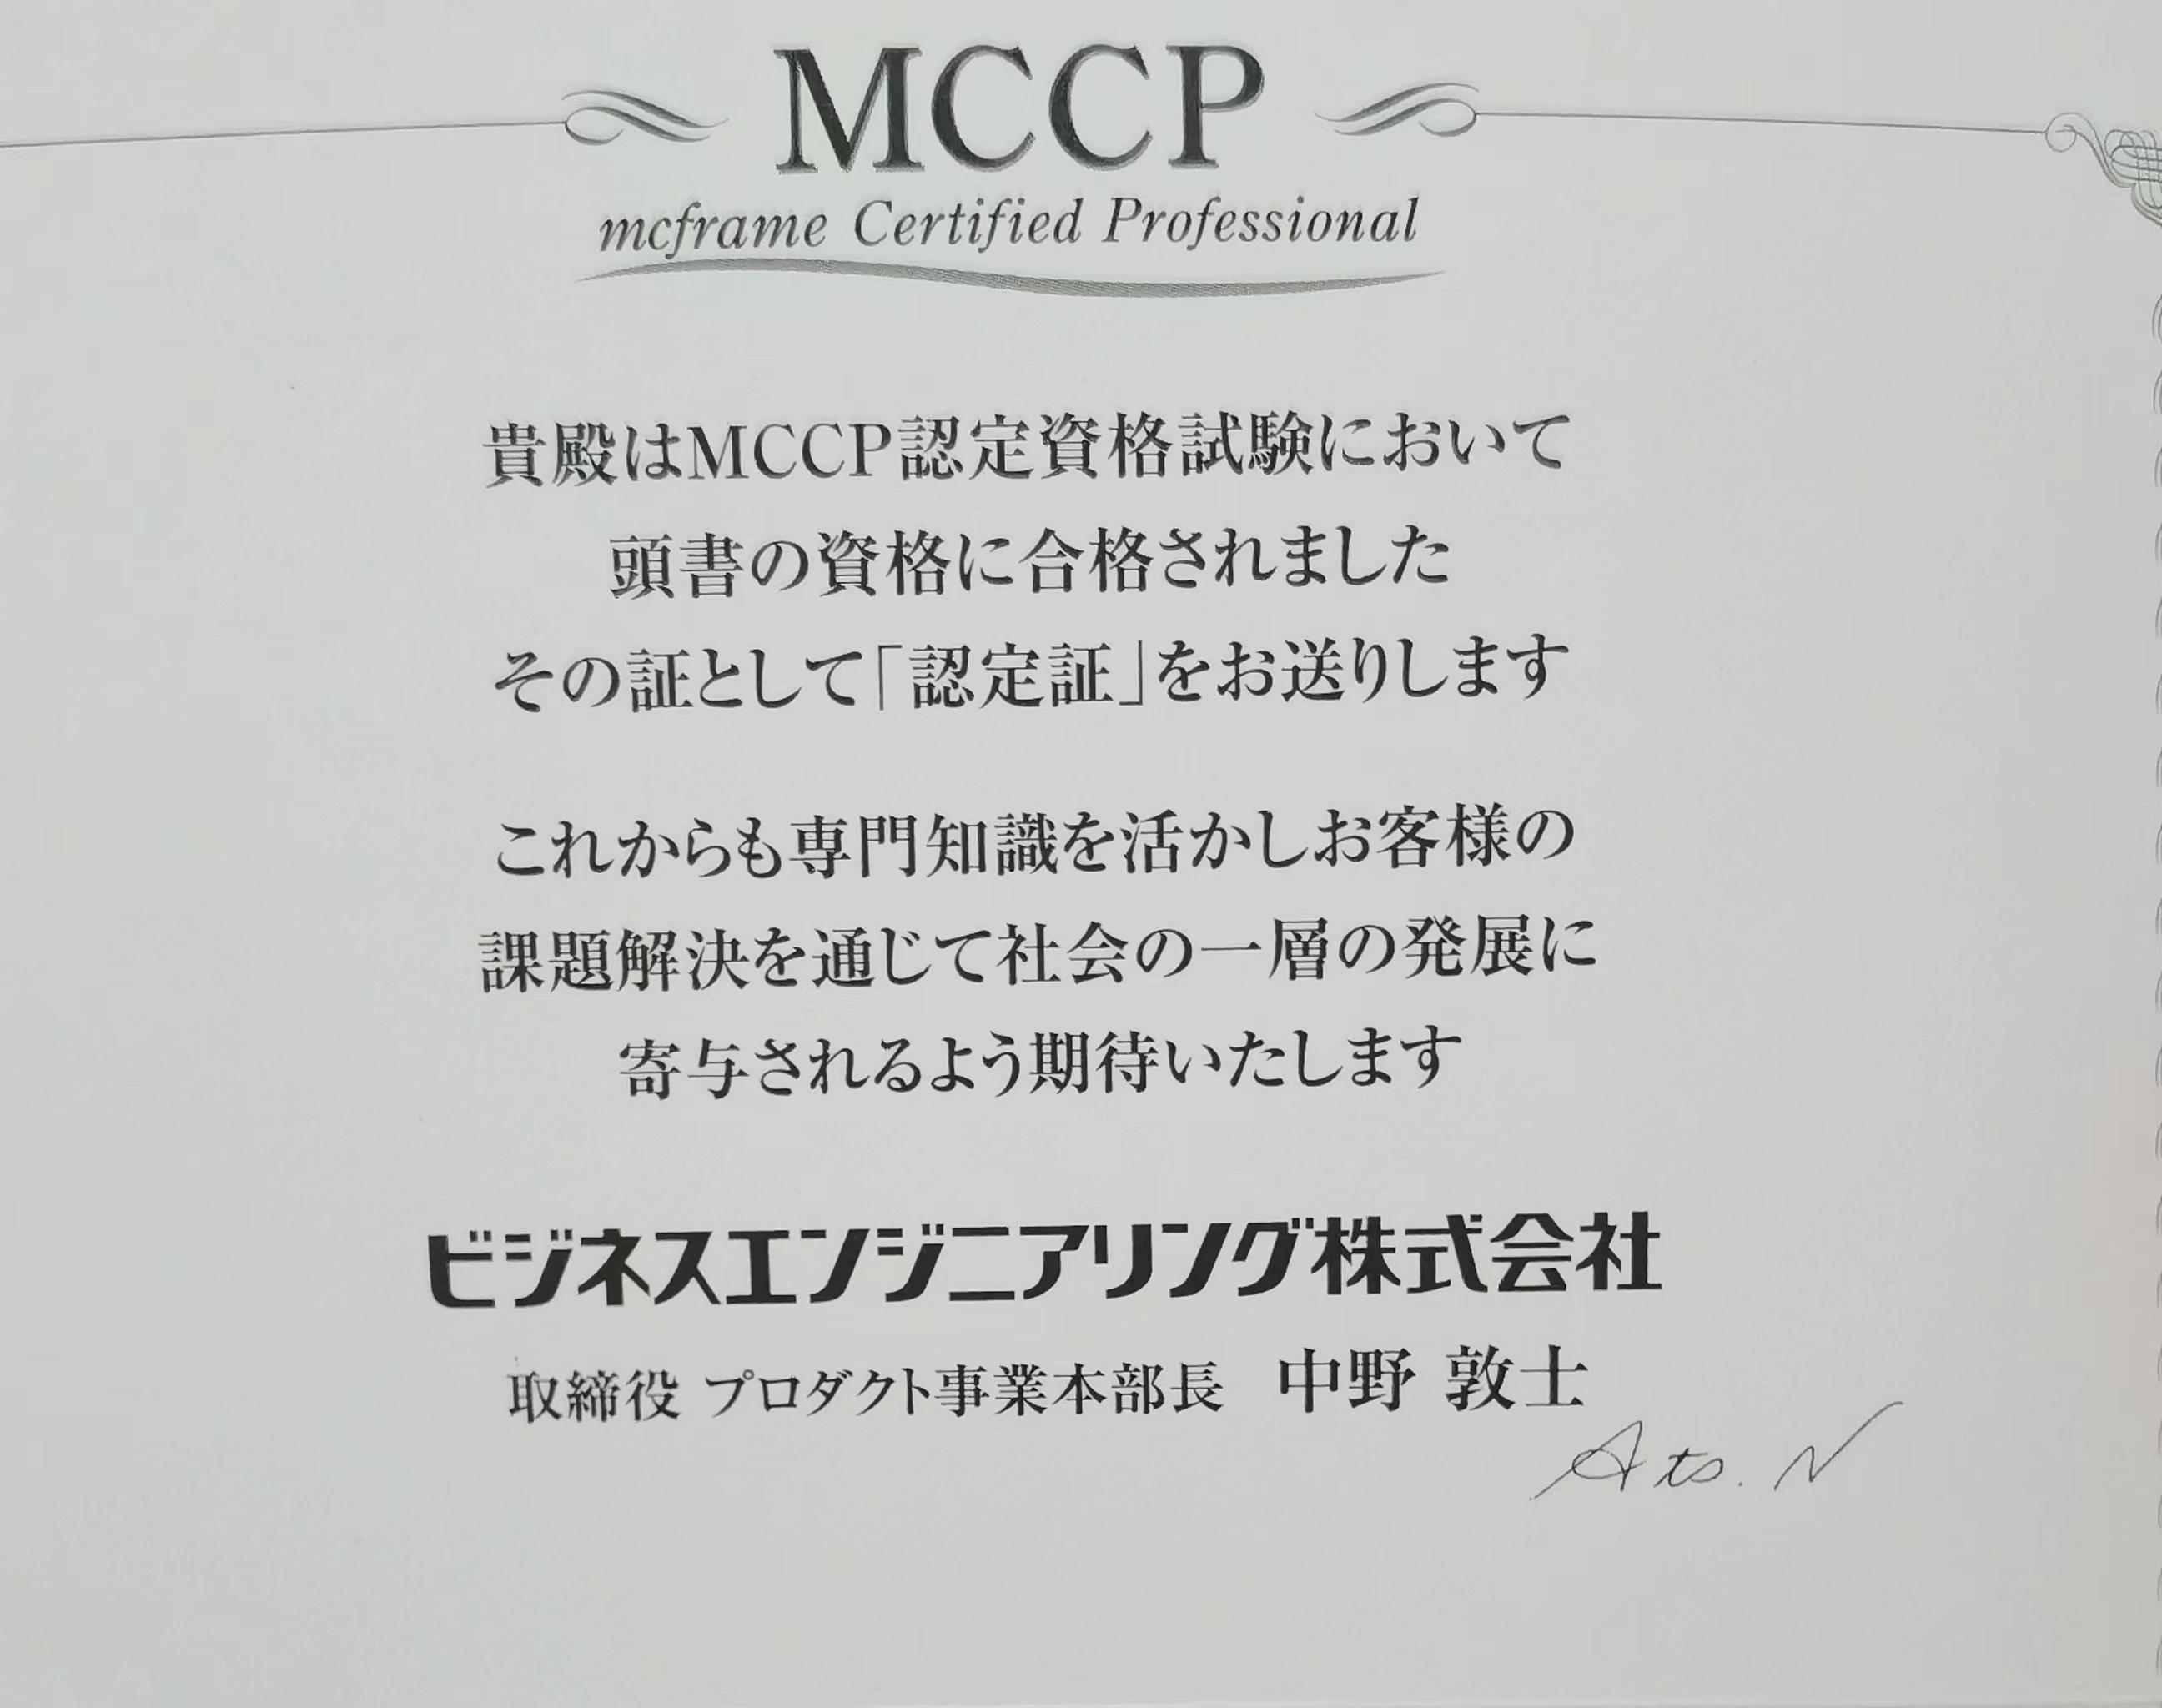 MCCP
mcframe Certified Professional
貴殿はMCCP認定資格試験において
頭書の資格に合格されました
その証として「認定証」をお送りします
これからも専門知識を活かしお客様の
課題解決を通じて社会の一層の発展に
寄与されるよう期待いたします
ビジネスエンジニアリング株式会社
取締役 プロダクト事業本部長 中野 敦士
Ats. N